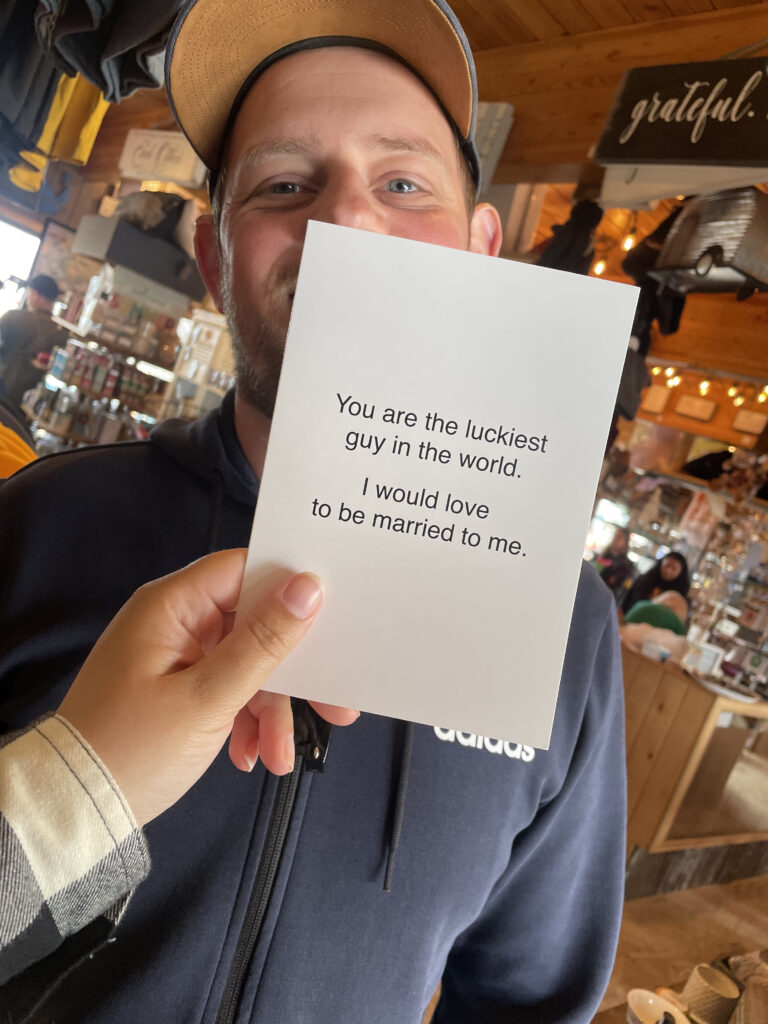 grateful.
You are the luckiest
guy in the world.
I would love
to be married to me.
adidas